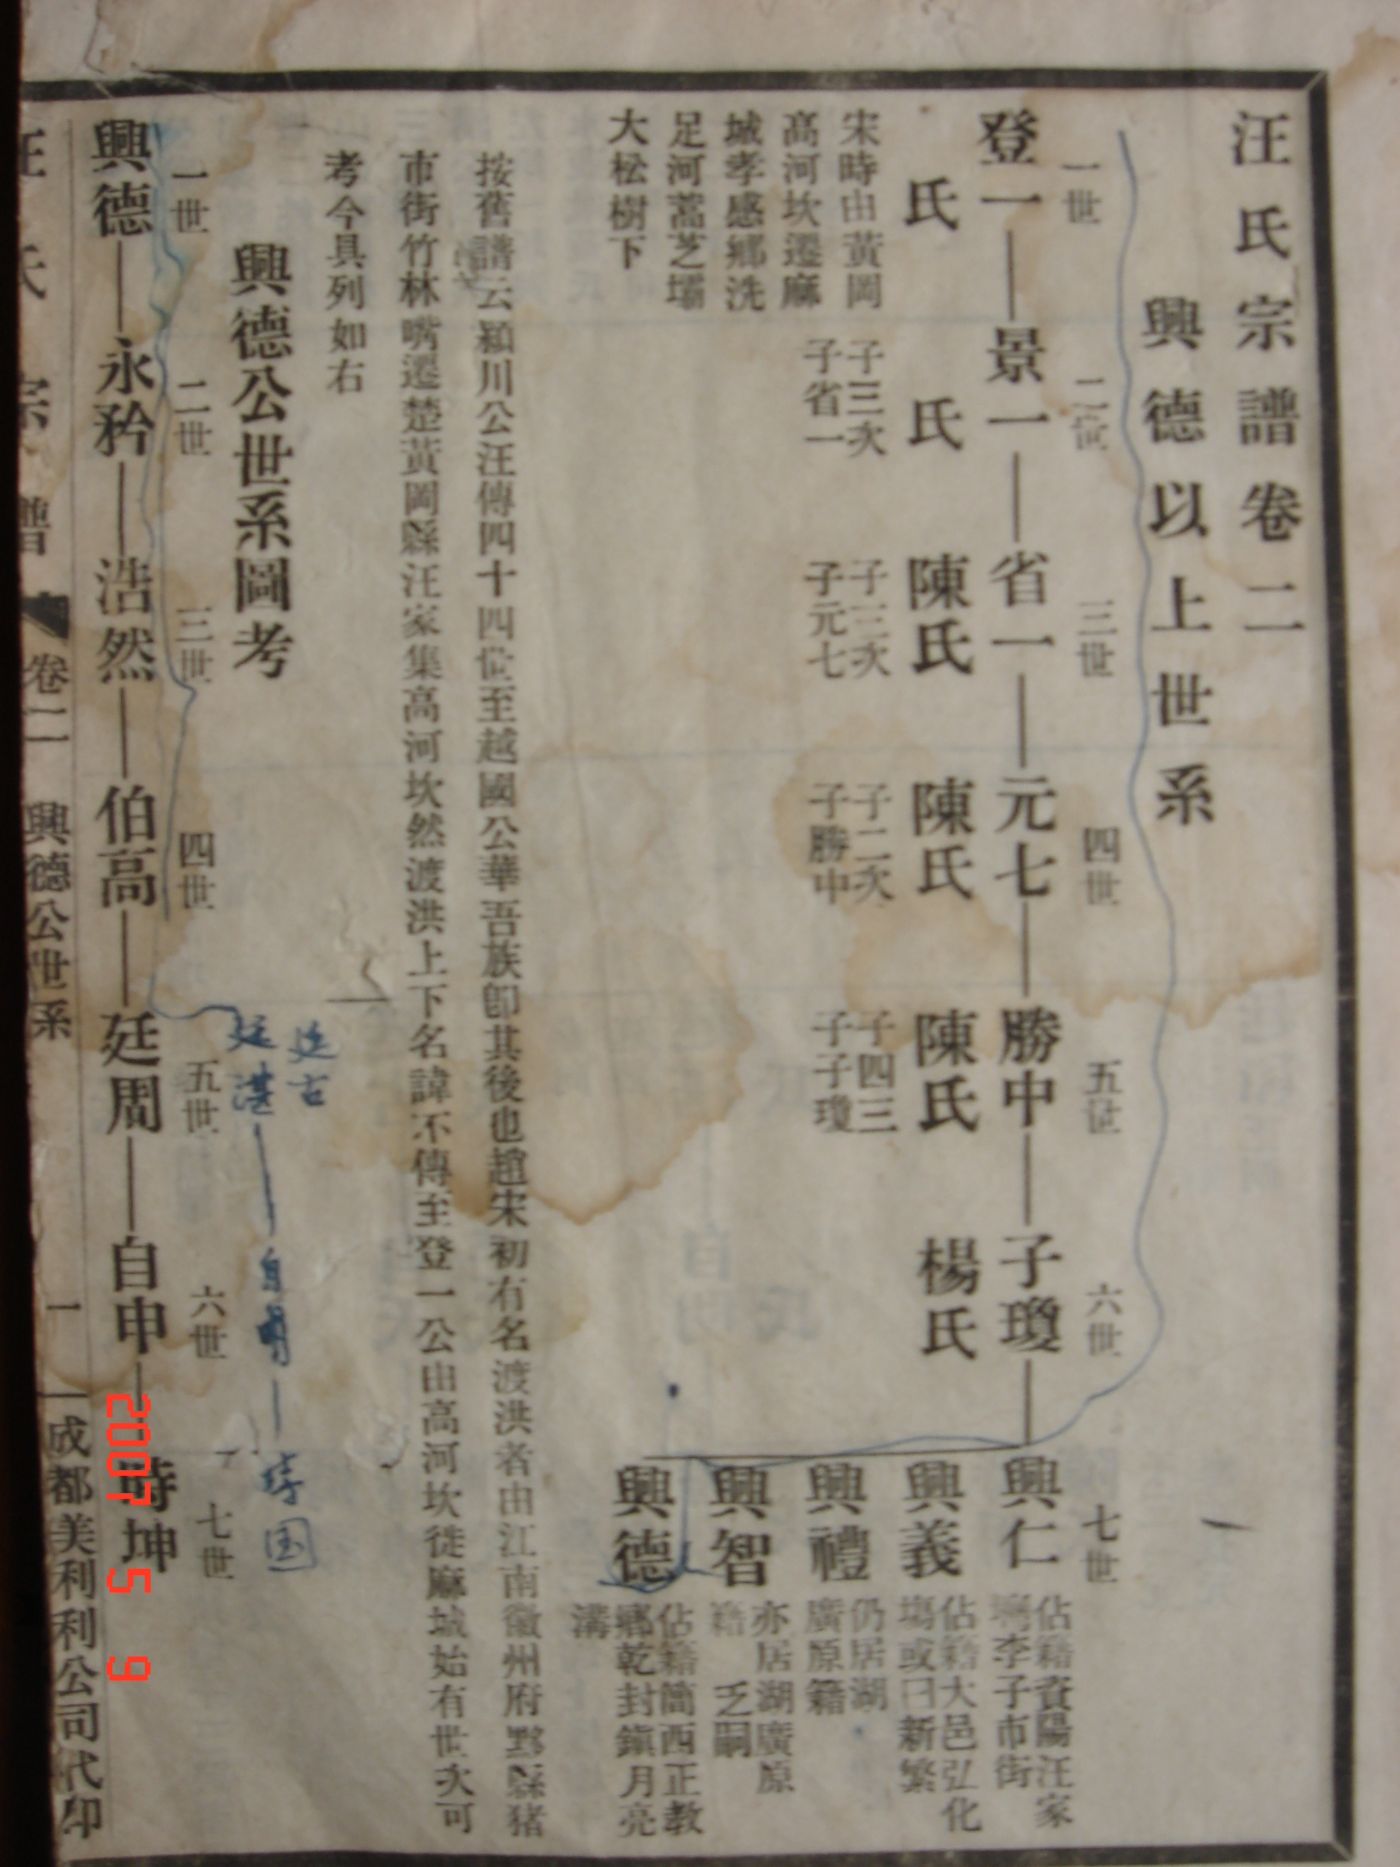 汪氏宗譜卷二
興德以上世系
一世 二世 三世 四世 五世 六世 七世
登一 景一 省一 元七 勝中 子瓊 興仁
佔籍資陽汪家
李子市街
氏 氏 陳氏 陳氏 陳氏 楊氏 興義
佔籍大邑弘化
塲或曰新繁
宋時由黃岡
高河坎遷麻
城孝感鄉洗
足河蒿芝壩
大松樹下
子三次
子省一
子二次
子元七
子二次
子勝中
子四三
子子瓊
興禮
仍居湖
廣原籍
興智
亦居湖廣原
籍 乏嗣
興德
佔籍簡西正教
鄉乾封鎮月亮
溝
按舊譜云穎川公汪傳四十四世至越國公華吾族卽其後也趙宋初有名渡洪者由江南徽州府黟縣猪
市街竹林嘴遷楚黃岡縣汪家集高河坎然渡洪上下名諱不傳至登一公由高河坎徙麻城始有世次可
考今具列如右
興德公世系圖考
廷古
廷湛 自明 国
一世 二世 三世 四世 五世 六世 七世
興德 永矜 浩然 伯高 廷周 自申 時坤
汪氏宗譜 卷二 興德公世系 一 成都美利利公司代印
2007 5 9